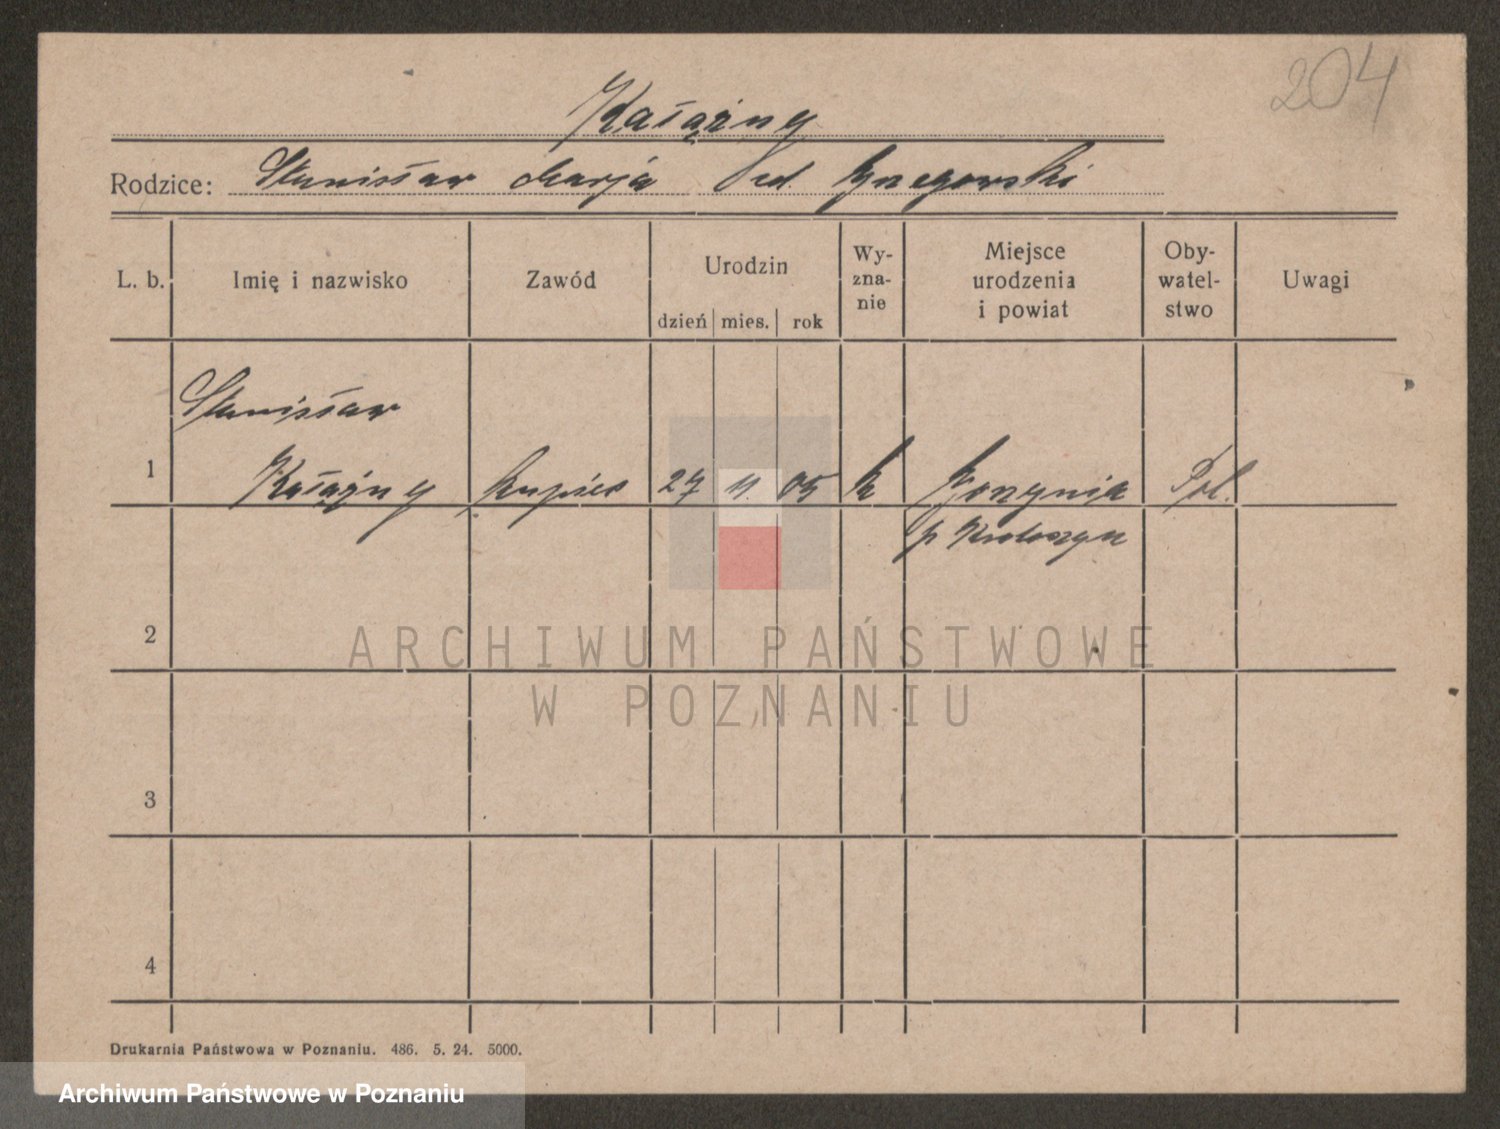 204
Kałążny
Rodzice: Stanisław Marja
L. b. Imię i nazwisko Zawód Urodzin dzień mies. rok Wy-zna-nie Miejsce urodzenia i powiat Oby-watel-stwo Uwagi
Stanisław
1 Kałążny kupiec 27 11. 05 k Pol.
p Krotoszyn
2
ARCHIWUM PAŃSTWOWE
W POZNANIU
3
4
Drukarnia Państwowa w Poznaniu. 486. 5. 24. 5000.
Archiwum Państwowe w Poznaniu